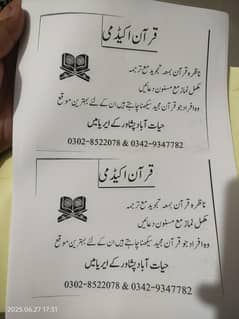 قرآن اکیڈمی
ناظرہ قرآن بمعہ تجوید مع ترجمہ
مکمل نماز مع مسنون دعائیں
وہ افراد جو قرآن مجید سیکھنا چاہتے ہیں ان کے لئے بہترین موقع
حیات آباد پشاور کے ایریا میں
0302-8522078 & 0342-9347782
قرآن اکیڈمی
ناظرہ قرآن بمعہ تجوید مع ترجمہ
مکمل نماز مع مسنون دعائیں
وہ افراد جو قرآن مجید سیکھنا چاہتے ہیں ان کے لئے بہترین موقع
حیات آباد پشاور کے ایریا میں
0302-8522078 & 0342-9347782
2025.06.27 17:31